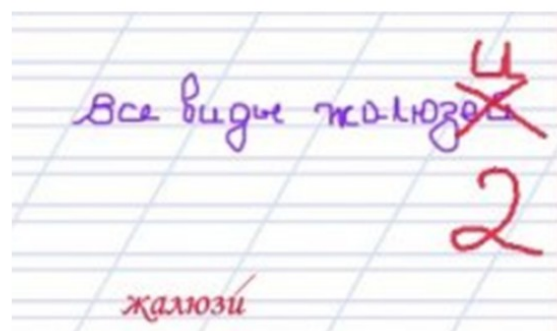 и
Все виды жалюзей
2
жалюзи́